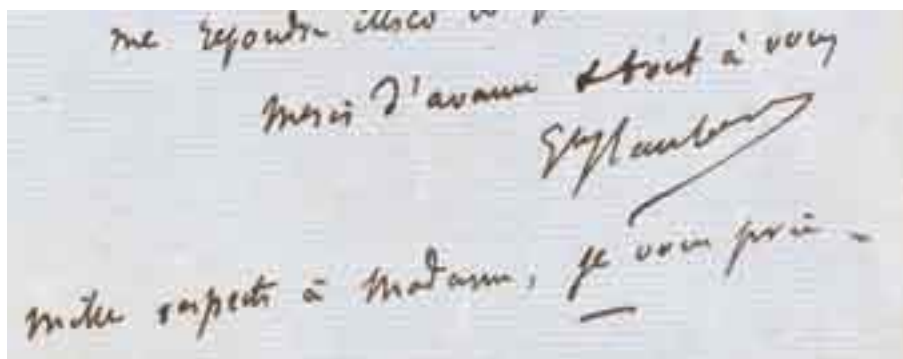 me répondre illico
Merci d'avance & tout à vous
Gve Flaubert
mille respects à Madame, je vous prie –